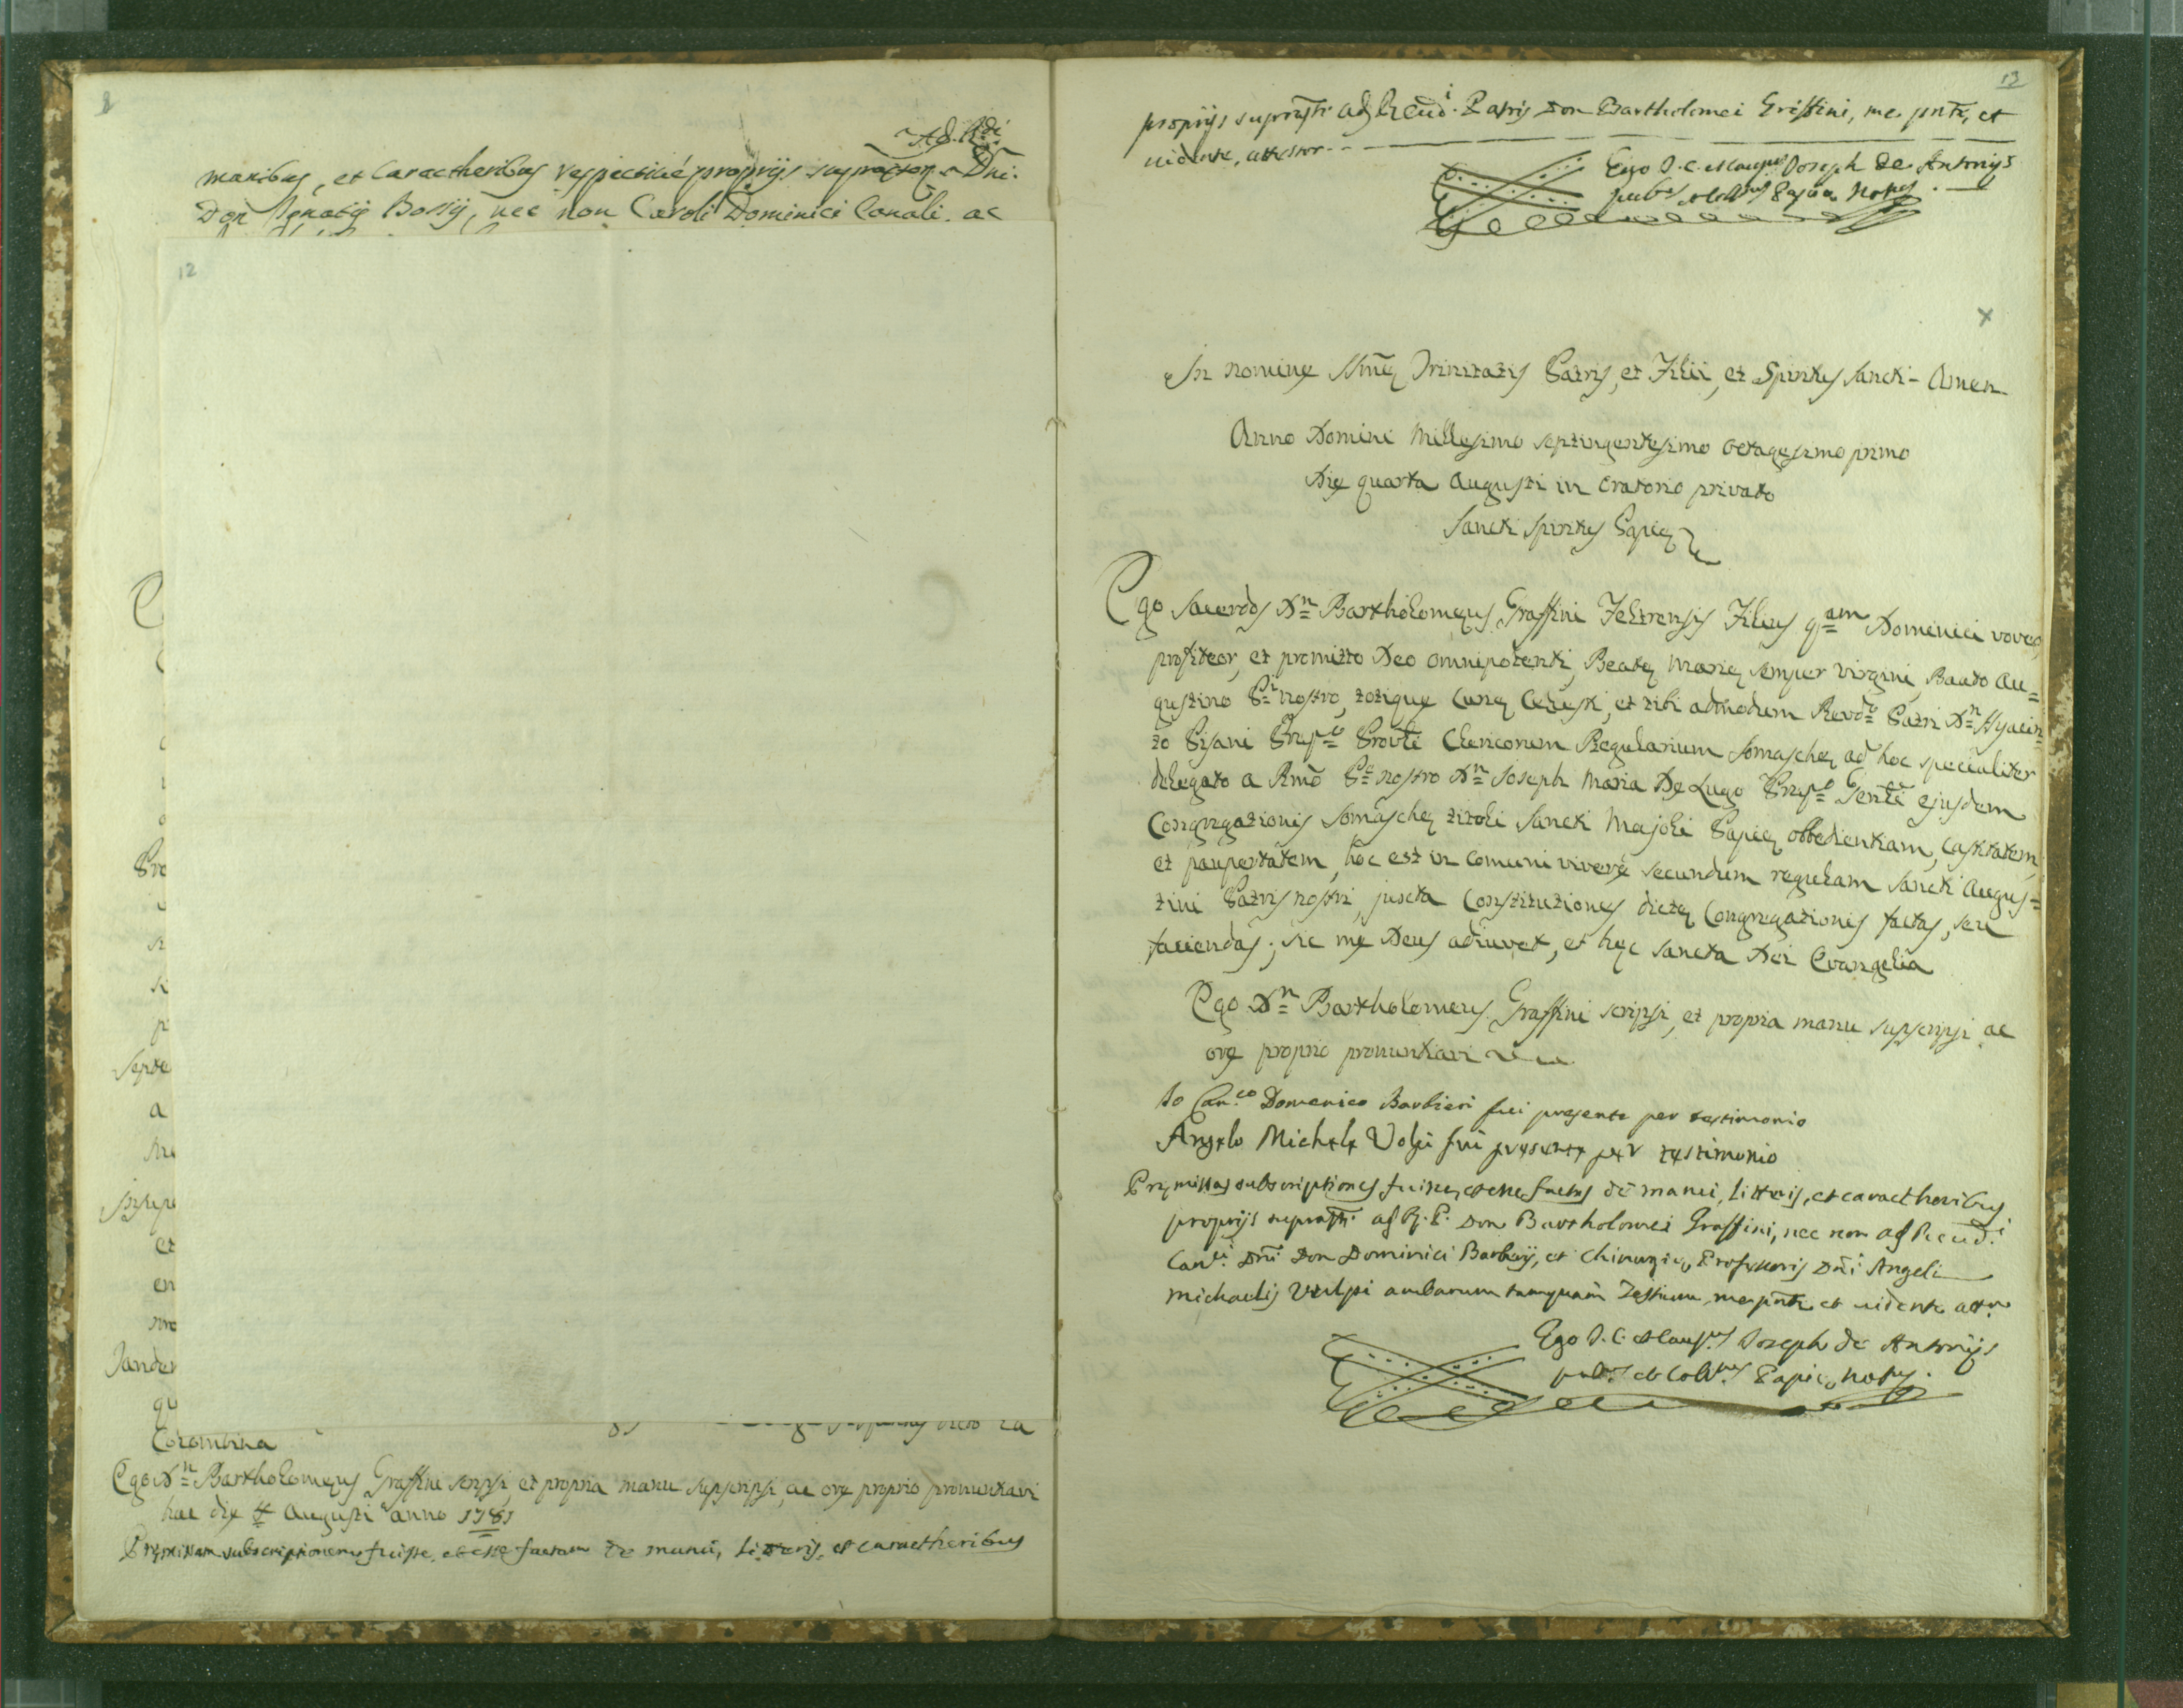 8
Ad. R.di
manibus, et caractheribus respectivé proprijs suprascrĩ Dñi.
Don Ignatij Bossij, nec non Caroli Dominici Canali ac
12
Pro
Septe
a
et
en
Jander
qu
Colombina
Ego Dn Bartholomęus Graffini scripsi, et propria manu supscripsi, ac orę proprio pronuntiavi
hac dię 4 Augusti anno 1781
Pręmissam subscriptionem fuisse, et esse factam de manu, Litteris, et caractheribus
13
proprijs suprascti adm Reũdi Patris Don Bartholomei Griffini, me pñte, et
uidente, attestor --
Ego J. C. et Caus.us Joseph de Antonijs
pub.us et Coll.us Papiæ Not.us
x
In nominę SSmę Trinitatis Patris, et Filii, et Spiritus Sancti - Amen
Anno Domini Millesimo septingentesimo octagesimo primo
Dię quarta Augusti in Oratorio privato
Sancti Spiritus Papię
Ego Sacerdos Dn Bartholomęus Graffini Feltrensis Filius qam Dominici voveo,
profiteor, et promitto Deo omnipotenti, Beatę Marię semper Virgini, Beato Au=
gustino Pi nostro, totique Curię Cęlesti, et tibi admodum Revdo Patri Dn Hyacin=
to Pisani Prępto Provli Clericorum Regularium Somaschę ad hoc specialiter
delegato a Rmõ Pe nostro Dn Joseph Maria De Lugo Prępto Genli ejusdem
Congregationis Somaschę tituli Sancti Majoli Papię obbedientiam, castitatem,
et paupertatem, hoc est in comuni viverę secundum regulam Sancti Augus=
tini Patris nostri, juxta Constitutiones dictę Congregationis factas, seu
faciendas; sic mę Deus adiuvet, et hęc Sancta Dei Evangelia
Ego Dn Bartholomeus Graffini scripsi, et propria manu supscripsi, ac
orę proprio pronuntiavi
Io Can.co Domenico Barbieri fui presente per testimonio
Angelo Michele Volpi fui presente per testimonio
Pręmissas subscriptiones fuisse, et esse factas de manu, litteris, et caractheribus
proprijs suprascti adm R. P. Don Bartholomei Graffini, nec non adm Reũd.i
Can.ci Dñi Don Dominici Barberij, et Chirurgię Professoris Dñi Angeli
Michaelis Vulpi amborum tamquam Testium, me pñte et uidente attor
Ego J. C. et Caus.us Joseph de Antonijs
pub.us et Coll.us Papię Not.us